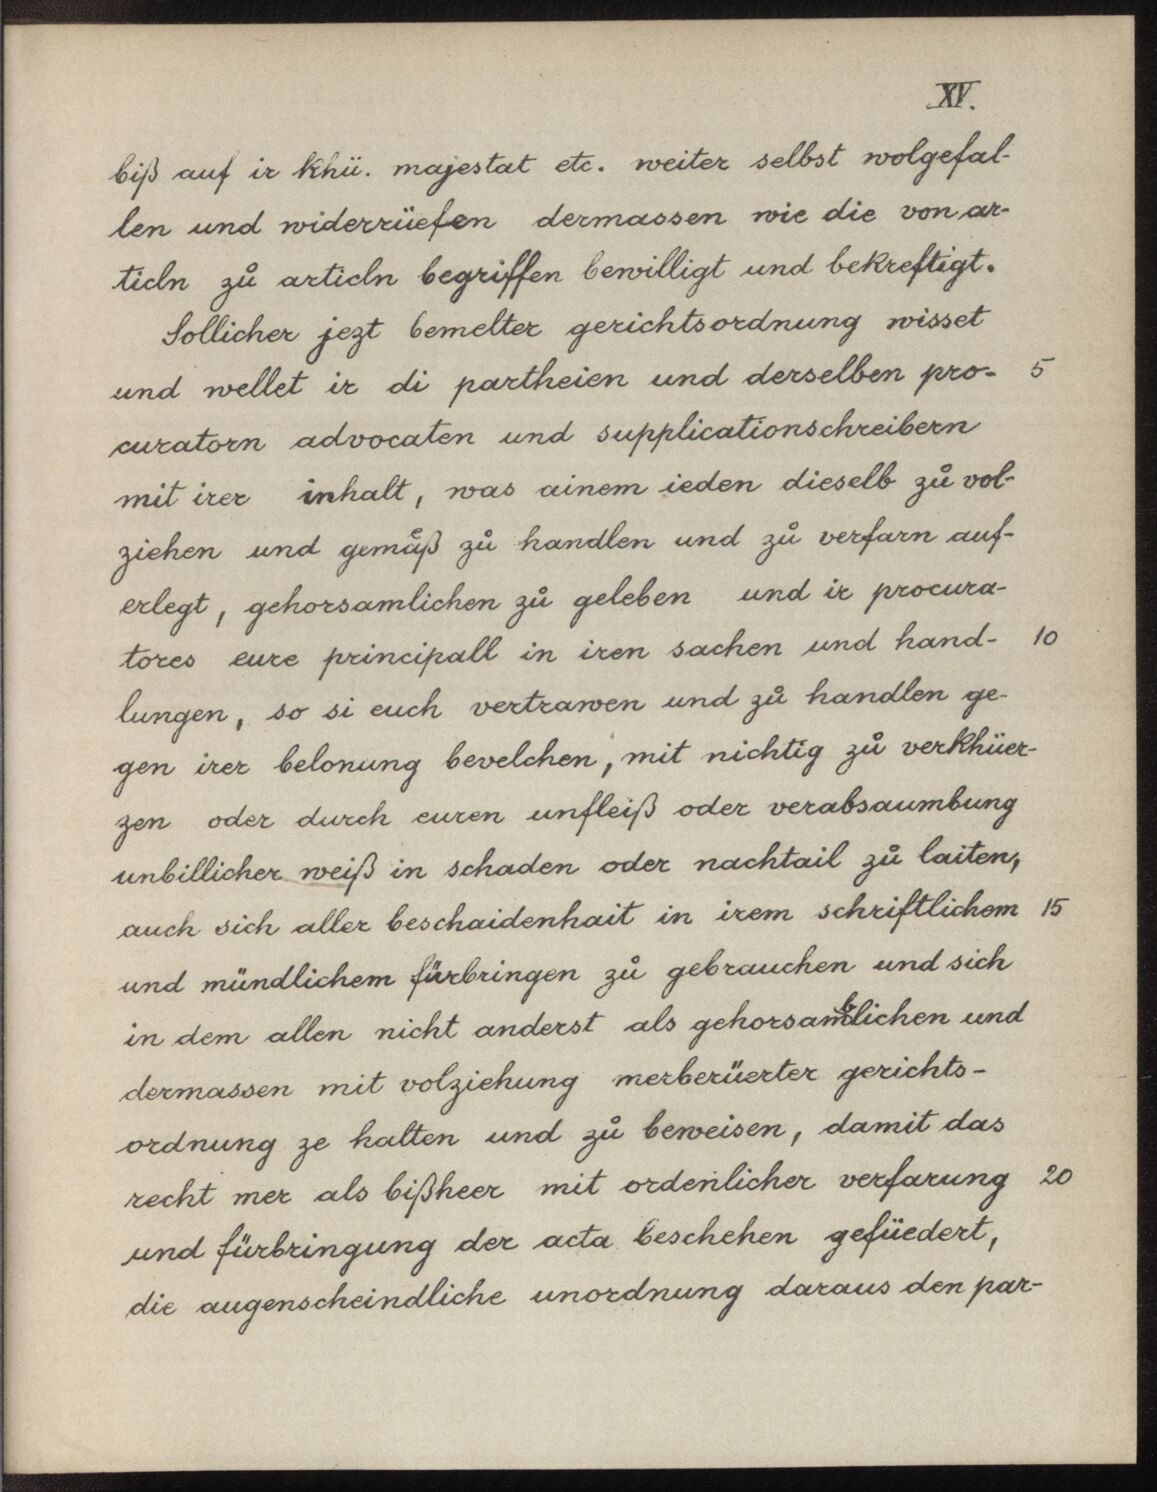 XV.
biß auf ir khü. majestat etc. weiter selbst wolgefal-
len und widerrüefen dermassen wie die von ar-
ticln zů articln begriffen bewilligt und bekreftigt.
Sollicher jezt bemelter gerichtsordnung wisset
und wellet ir di partheien und derselben pro- 5
curatorn advocaten und supplicationschreibern
mit irer inhalt, was ainem ieden dieselb zů vol-
ziehen und gemåß zů handlen und zů verfarn auf-
erlegt, gehorsamlichen zů geleben und ir procura-
tores eure principall in iren sachen und hand- 10
lungen, so si euch vertrawen und zů handlen ge-
gen irer belonung bevelchen, mit nichtig zů verkhüer-
zen oder durch euren unfleiß oder verabsaumbung
unbillicher weiß in schaden oder nachtail zů laiten,
auch sich aller beschaidenhait in irem schriftlichem 15
und mündlichem fürbringen zů gebrauchen und sich
in dem allen nicht anderst als gehorsamblichen und
dermassen mit volziehung merberüerter gerichts-
ordnung ze halten und zů beweisen, damit das
recht mer als bißheer mit ordenlicher verfarung 20
und fürbringung der acta beschehen gefüedert,
die augenscheindliche unordnung daraus den par-